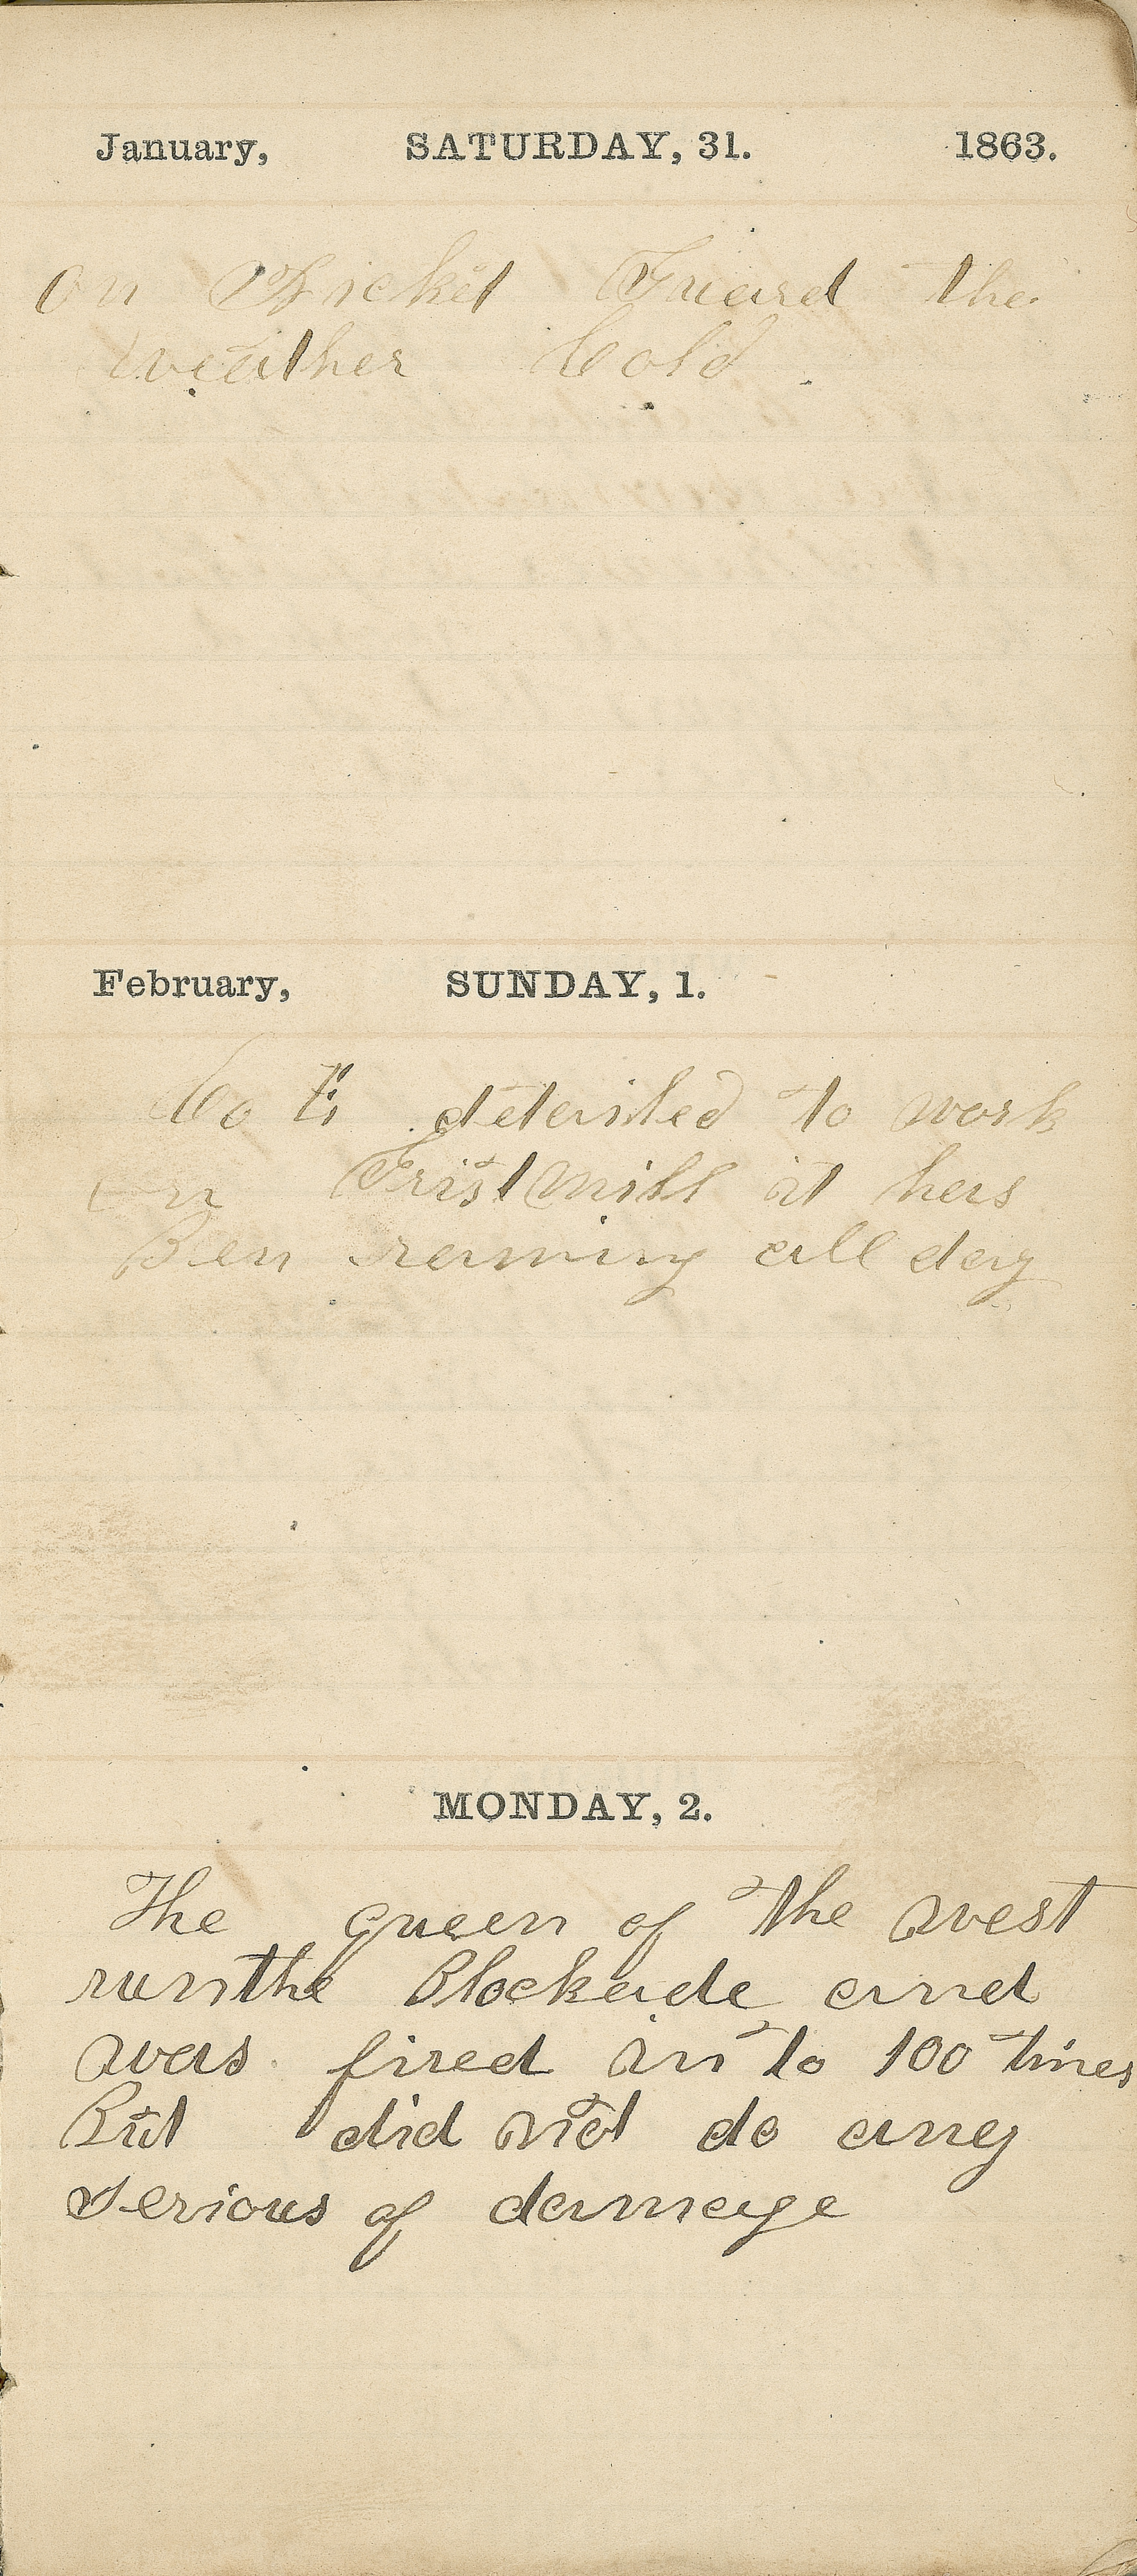 January, SATURDAY, 31. 1863.
On Picket Guard the
weather Cold
February, SUNDAY, 1.
Co E detailed to work
on Grist Mill it hers
Ben raining all day
MONDAY, 2.
The queen of the west
run the Blockade and
was fired in to 100 times
But did not do any
serious of damage